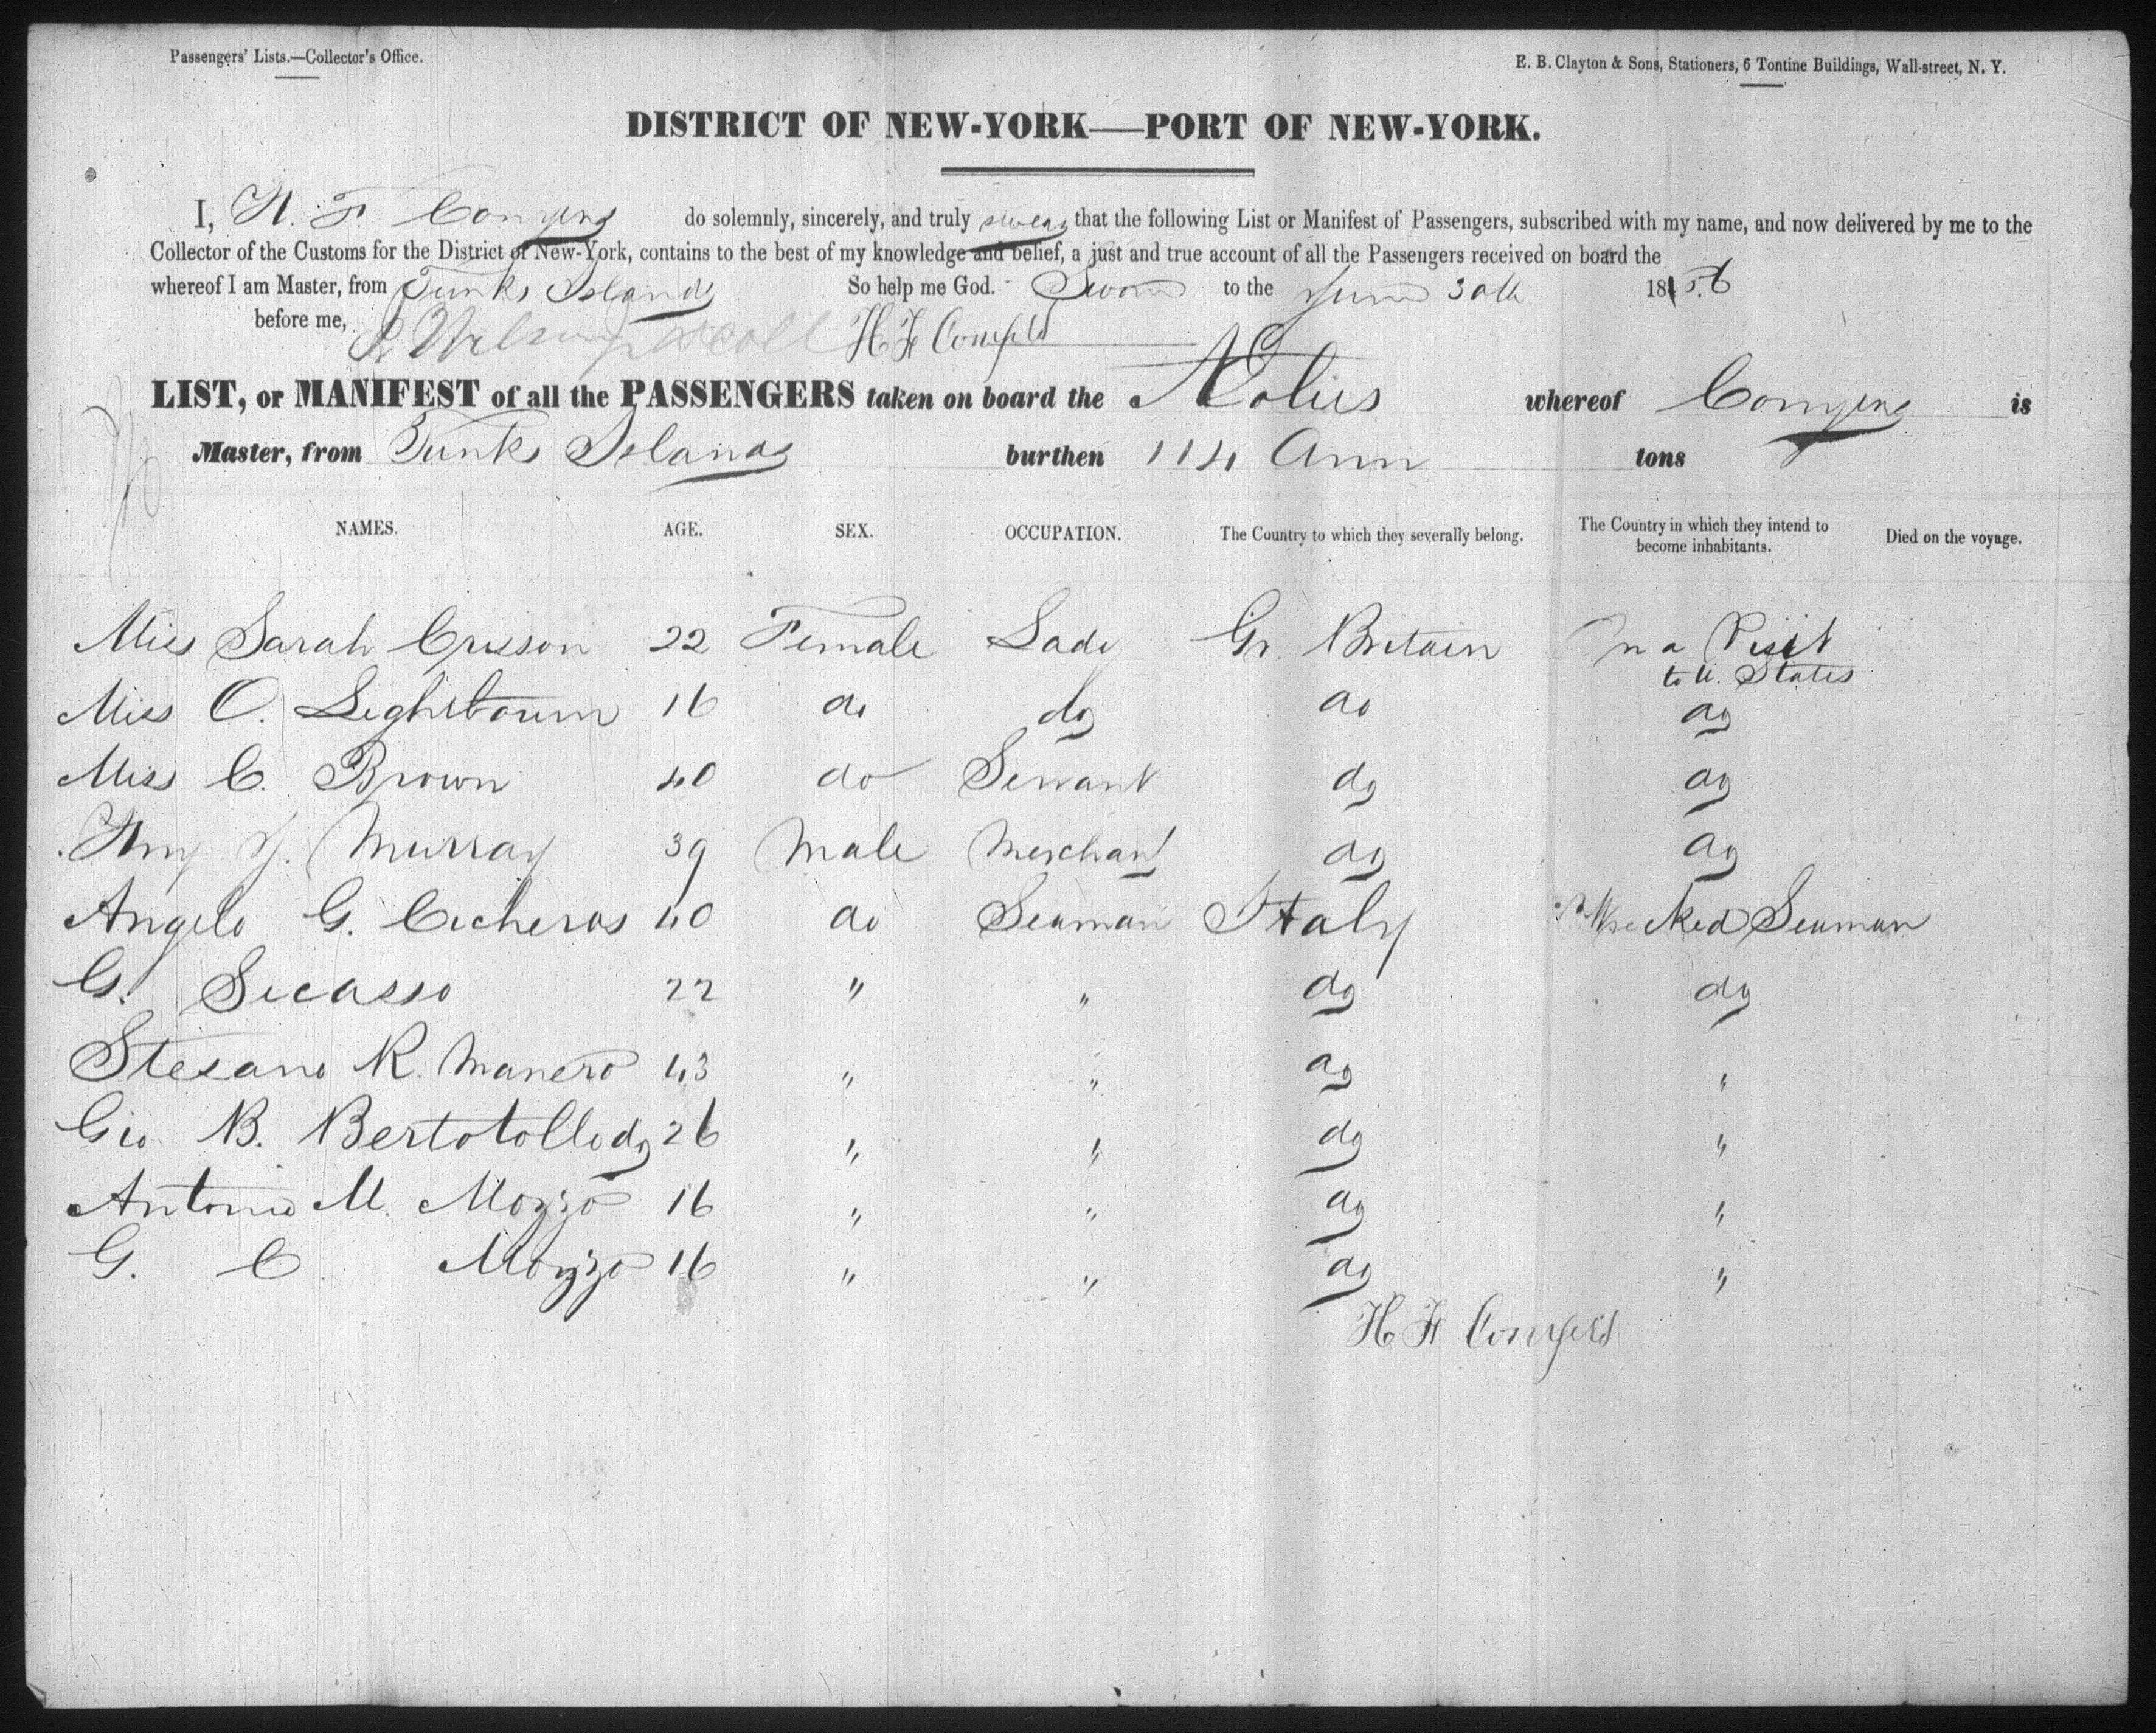 Passengers' Lists.—Collector's Office.
E. B. Clayton & Sons, Stationers, 6 Tontine Buildings, Wall-street, N. Y.
DISTRICT OF NEW-YORK—PORT OF NEW-YORK.
I, H. F. Conyers do solemnly, sincerely, and truly swear that the following List or Manifest of Passengers, subscribed with my name, and now delivered by me to the
Collector of the Customs for the District of New-York, contains to the best of my knowledge and belief, a just and true account of all the Passengers received on board the
whereof I am Master, from Turks Islands So help me God. Sworn to the June 30th 1856
before me, H F Conyers
LIST, or MANIFEST of all the PASSENGERS taken on board the Æolius whereof Conyers is
Master, from Turks Islands burthen 114 Am tons
NAMES. AGE. SEX. OCCUPATION. The Country to which they severally belong. The Country in which they intend to become inhabitants. Died on the voyage.
Miss Sarah Crisson 22 Female Lady Gr. Britain On a Visit
to U. States
Miss O. Lightbourn 16 do do do do
Miss C. Brown 40 do Servant do do
Murray 39 Male Merchant do do
Angelo G. Cicheros 40 do Seaman Italy Wrecked Seaman
G. Sicasso 22 " " do do
Stesano R. Manero 43 " " do "
Gio B. Bertotollo do 26 " " do "
Antonio M. Mozzo 16 " " do "
G. C. Mozzo 16 " " do "
H F Conyers